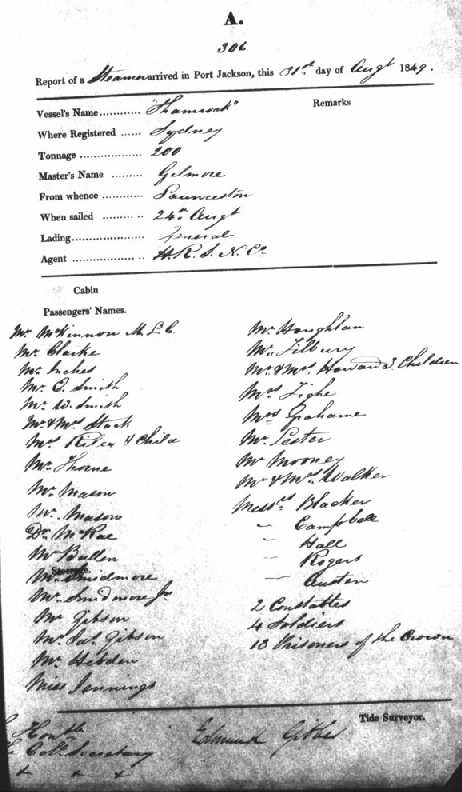 A.
306
Report of a Steamer arrived in Port Jackson, this 31st day of Augt 1849.
Vessel's Name ............ "Shamrock"
Remarks
Where Registered ...... Sydney
Tonnage .................. 200
Master's Name ......... Gilmore
From whence ......... Launceston
When sailed ............ 24th Augt
Lading ..................... General
Agent ..................... H. R. S. N. Co
Cabin
Passengers' Names.
Mr McKinnon M. L. C.
Mr Clarke
Mr Inches
Mr C. Smith
Mr W. Smith
Mr & Mrs Stark
Mrs & Child
Mr Thorne
Mr Mason
Mr Mason
Dr McRae
Mr Bullen
Mr Smidmore
Mr Smidmore Jr
Mr Gibson
Mr Jas. Gibson
Mr Hebden
Miss Jennings
Mr Houghton
Mr Tilbury
Mr & Mrs Howard 3 Children
Mrs Tighe
Mrs Grahame
Mr Lester
Mr Mooney
Mr & Mrs Walker
Messrs Blacker
" Campbell
" Hall
" Rogers
" Austen
2 Constables
4 Soldiers
13 Prisoners of the Crown
Tide Surveyor.
Honble
Coll Secretary
Edmund